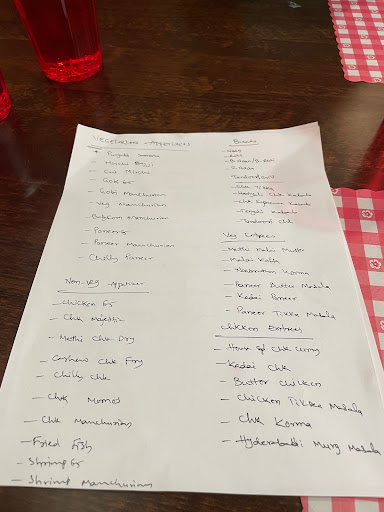 VEGETARIAN - APPETIZERS
Punjabi Samosa
- Mirchi Bajji
- Cut Mirchi
- Gobi 65
- Gobi Manchurian
- Veg Manchurian
- Babycorn Manchurian
- Paneer 65
- Paneer Manchurian
- Chilly Paneer
Non-Veg Appetizer
- Chicken 65
- Chk Majestic
- Methi Chk Dry
- Cashew Chk Fry
- Chilly Chk
- Chk Momos
- Chk Manchurian
- Fried Fish
- Shrimp 65
- Shrimp Manchurian
Breads
- Naan
- Roti
- Tandoori
- Chk Tikka
- Chk Kabab
- Chk Kabab
- Kabab
- Tandoori Chk
Veg Entrees
- Methi Malai Mutter
- Malai Kofta
- Navrathan Korma
- Paneer Butter Masala
- Kadai Paneer
- Paneer Tikka Masala
Chicken Entrees
- House Spl Chk Curry
- Kadai Chk
- Butter Chicken
- Chicken Tikka Masala
- Chk Korma
- Hyderabadi Murg Masala